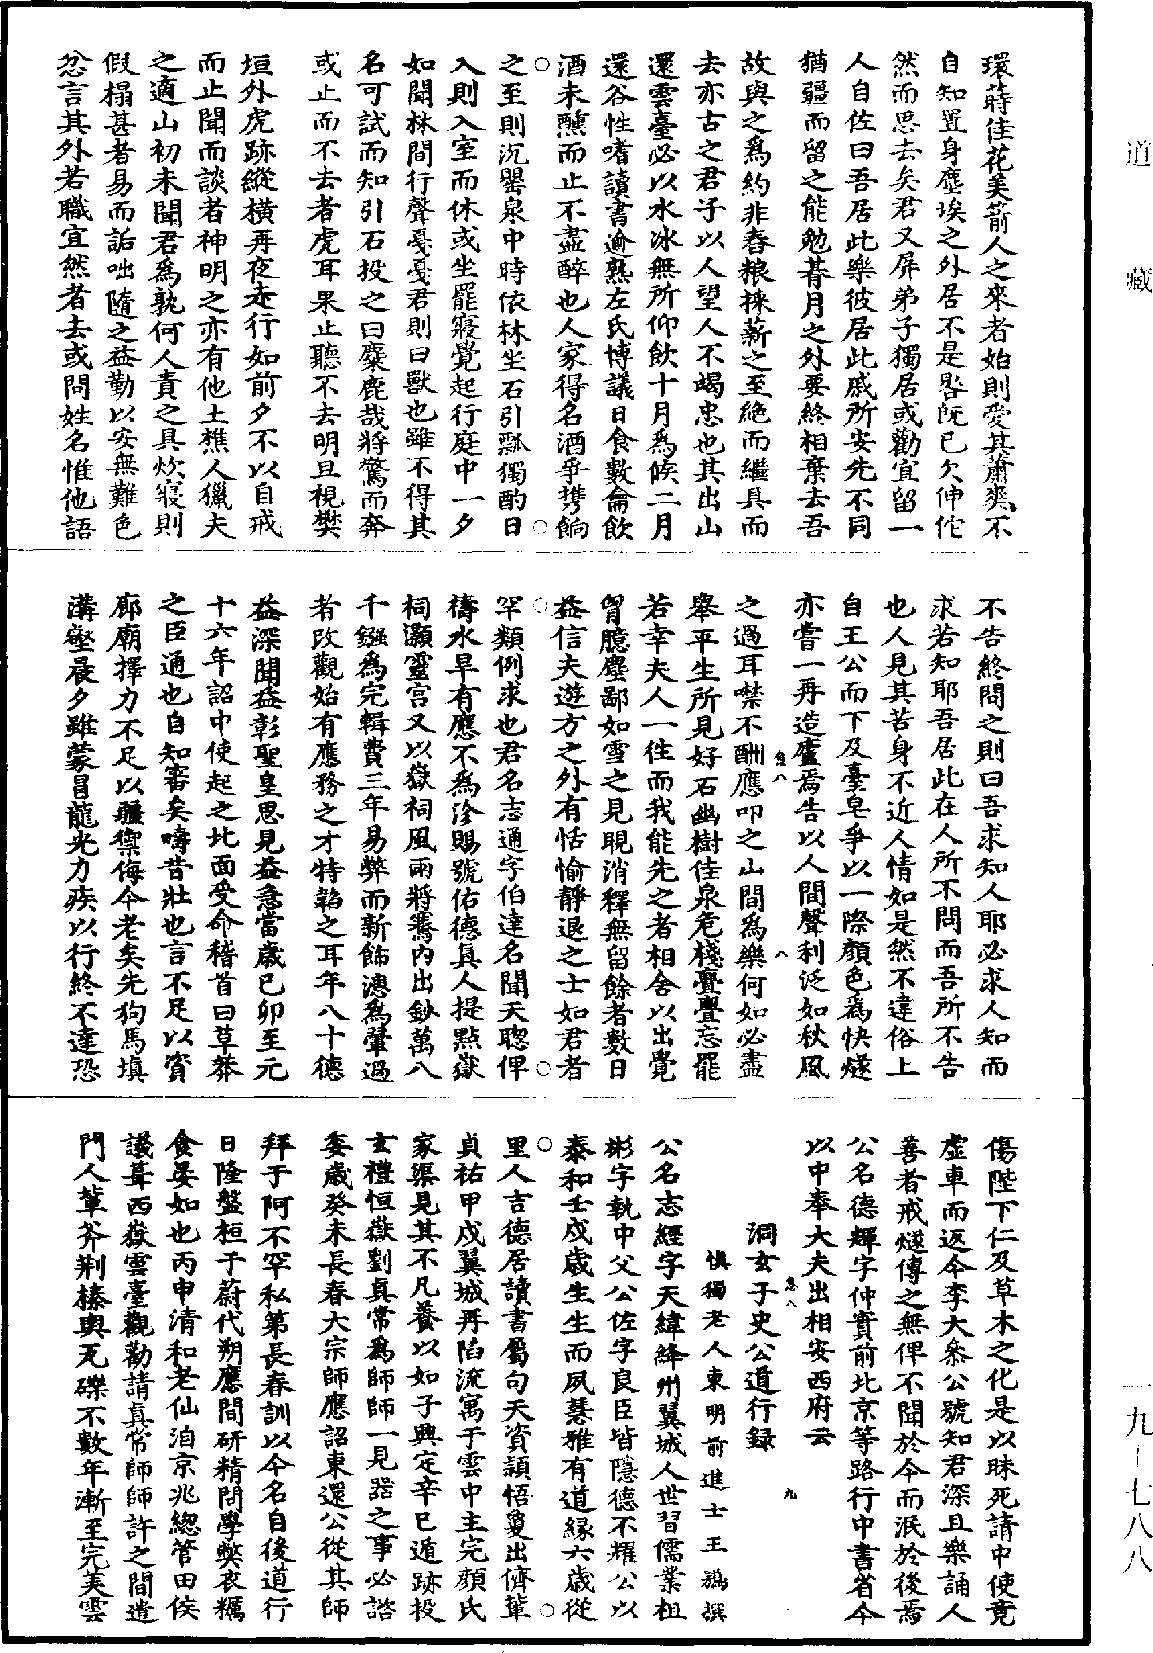 道藏
環蒔佳花美箭人之來者始則愛其蕭爽不
自知置身塵埃之外居不是晷既已欠伸佗
然而思去矣君又屏弟子獨居或勸宜留一
人自佐曰吾居此樂彼居此戚所安先不同
猶疆而留之能勉朞月之外要終相棄去吾
故與之為約非舂粮採薪之至絶而繼具而
去亦古之君子以人望人不竭忠也其出山
還雲臺必以水冰無所仰飲十月為候二月
還谷性嗜讀書逾熟左氏博議日食數龠飲
酒未醺而止不盡醉也人家得名酒爭㩦餉
之至則沉罌泉中時依林坐石引瓢獨酌日
入則入室而休或坐罷寢覺起行庭中一夕
如聞林間行聲戞戞君則曰獸也雖不得其
名可試而知引石投之曰麋鹿哉將驚而奔
或止而不去者虎耳果止聽不去明旦視樊
垣外虎跡縱橫再夜走行如前夕不以自戒
而止聞而談者神明之亦有他土樵人獵夫
之適山初未聞君為孰何人責之具炊寢則
假榻甚者易而詬咄隨之益勤以安無難色
忿言其外若職宜然者去或問姓名惟他語
不告終問之則曰吾求知人耶必求人知而
求若知耶吾居此在人所不問而吾所不告
也人見其苦身不近人情如是然不違俗上
自王公而下及臺皂爭以一際顏色為快燧
亦嘗一再造廬焉告以人間聲利泛如秋風
之過耳噤不酬應叩之山間為樂何如必盡
舉平生所見好石幽樹佳泉危棧亹亹忘罷
若幸夫人一往而我能先之者相舍以出覺
胷臆塵鄙如雪之見晛消釋無留餘者數日
益信夫遊方之外有恬愉靜退之士如君者
罕類例求也君名志通字伯達名聞天聦俾
禱水旱有應不為沴賜號佑德真人提點嶽
祠灝靈宫又以嶽祠風雨將騫内出鈔萬八
千鏹為完輯費三年易弊而新飾漶為翬過
者改觀始有應務之才特韜之耳年八十德
益深聞益彰聖皇思見益急當歲已卯至元
十六年詔中使起之北面受命稽首曰草莽
之臣通也自知審矣嚋昔壯也言不足以資
廊廟擇力不足以疆禦侮今老矣先狗馬填
溝壑晨夕雖蒙冒龍光力疾以行終不達恐
傷陛下仁及草木之化是以昧死請中使竟
虚車而返今李大叅公號知君深且樂誦人
善者戒燧傳之無俾不聞於今而泯於後焉
公名德輝字仲實前北京等路行中書省今
以中奉大夫出相安西府云
洞玄子史公道行録
慎獨老人東明前進士王鶚撰
公名志經字天緯絳州翼城人世習儒業祖
彬字執中父公佐字良臣皆隱德不耀公以
泰和壬戍歲生生而夙慧雅有道縁六歲從
里人吉德居讀書屬句天資頴悟敻出儕輩
貞祐甲戍翼城再陷流寓于雲中主完顏氏
家渠見其不凡養以如子興定辛巳遁跡投
玄禮恒嶽劉真常為師師一見器之事必諮
委歲癸未長春大宗師應詔東還公從其師
拜于阿不罕私第長春訓以今名自後道行
日隆盤桓于蔚代朔應間研精問學獘衣糲
食晏如也丙申清和老仙洎京兆緫管田侯
議葺西嶽雲臺觀勸請真常師師許之間遣
門人輩斧荆榛輿瓦礫不數年漸至完美雲
一九-七八八